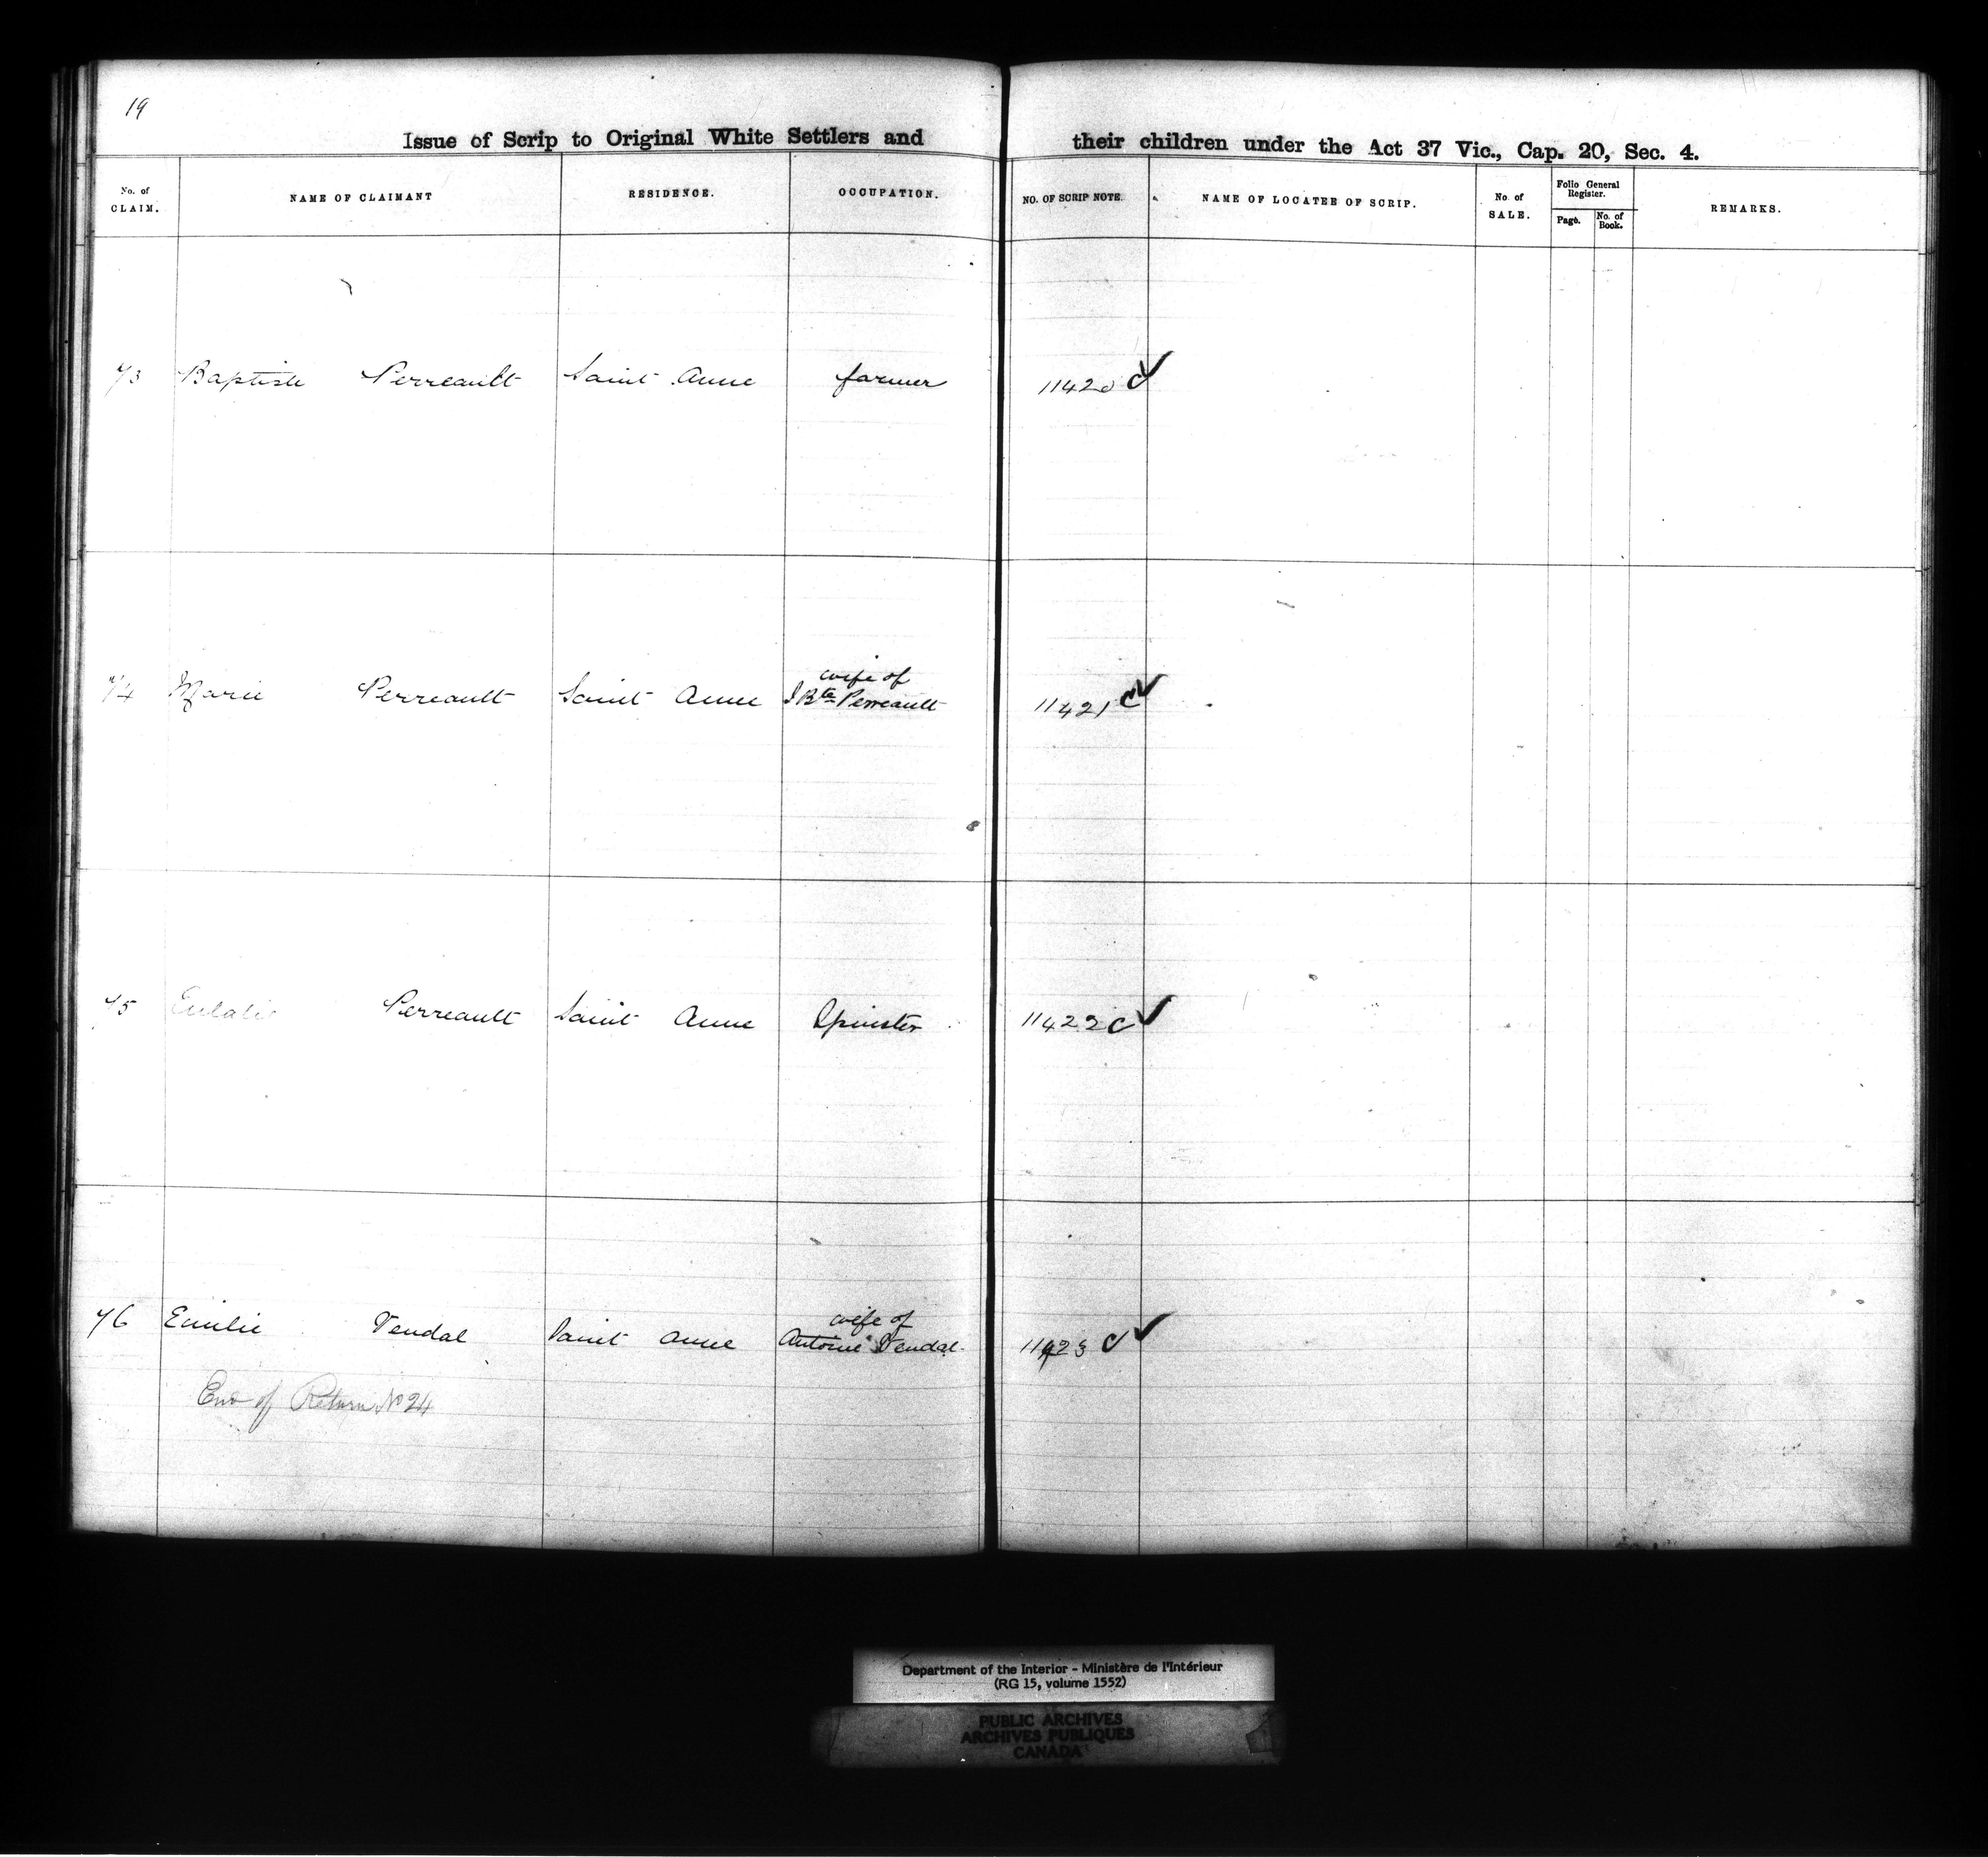 19
Issue of Scrip to Original White Settlers and their children under the Act 37 Vic., Cap. 20, Sec. 4.
No. of CLAIM. NAME OF CLAIMANT RESIDENCE. OCCUPATION. NO. OF SCRIP NOTE. NAME OF LOCATEE OF SCRIP. No. of SALE. Folio General Register. Page. No. of Book. REMARKS.
73 Baptiste Perreault Saint Anne farmer 11420 C ✓
74 Marie Perreault Saint Anne wife of J Bte Perreault 11421 C ✓
75 Eulalie Perreault Saint Anne Spinster 11422 C ✓
76 Emilie Vendal Saint Anne wife of Antoine Vendal 11423 C ✓
End of Return No 24
Department of the Interior - Ministère de l'Intérieur
(RG 15, volume 1552)
PUBLIC ARCHIVES
ARCHIVES PUBLIQUES
CANADA